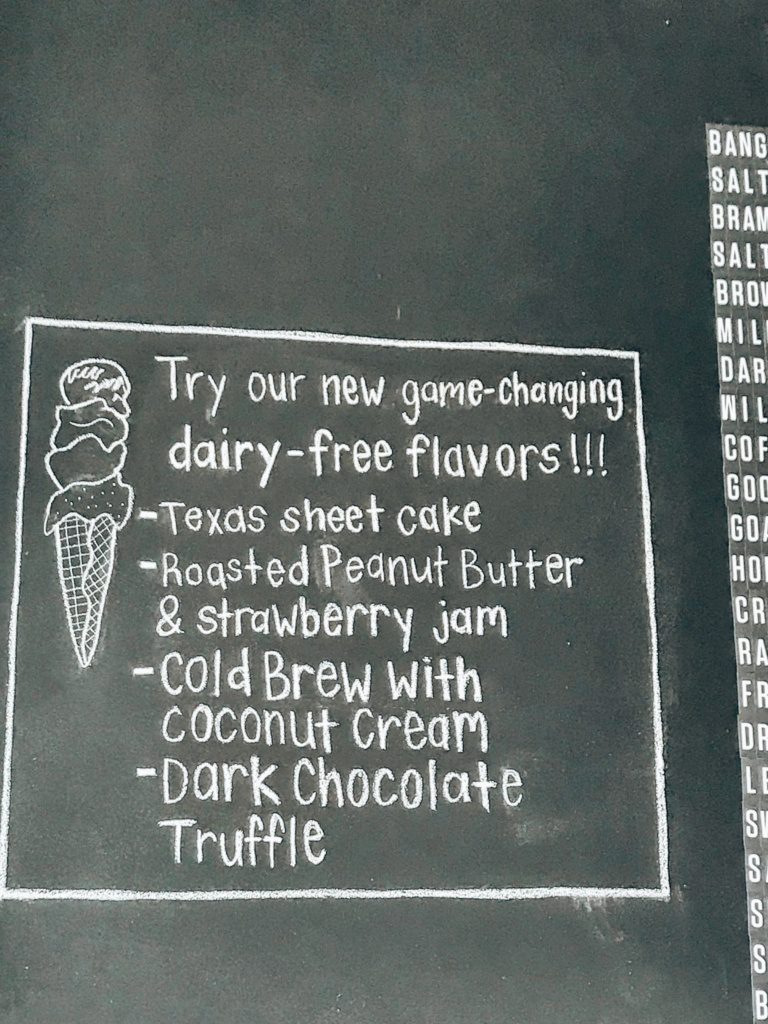 Try our new game-changing
dairy-free flavors!!!
-Texas sheet cake
-Roasted Peanut Butter
& strawberry jam
-Cold Brew with
coconut cream
-Dark Chocolate
Truffle
BANG
SALT
BRAM
SALT
BROW
MIL
DAR
WIL
COF
GOO
GOA
HON
CR
RA
FR
DR
LE
SW
SA
S
S
B